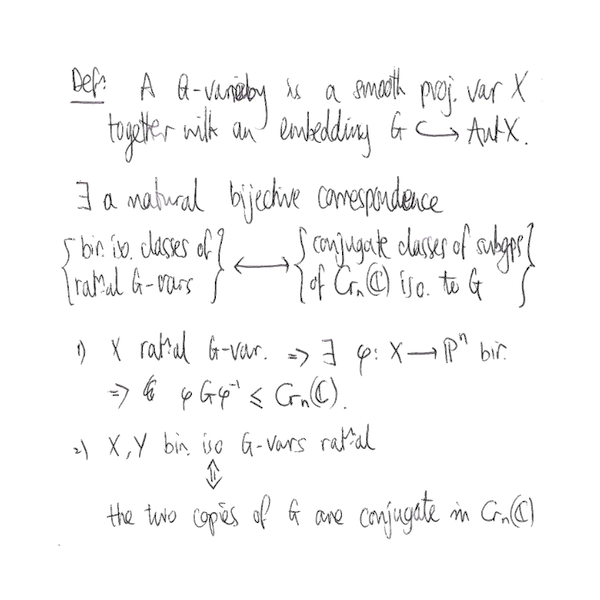 Def: A G-variety is a smooth proj. var X
together with an embedding G ↪ Aut X.
∃ a natural bijective correspondence
{bir. iso. classes of rat'al G-vars} ⟷ {conjugate classes of subgps of Crₙ(ℂ) iso. to G}
1) X rat'al G-var. ⇒ ∃ φ: X → ℙⁿ bir.
⇒ φGφ⁻¹ ≤ Crₙ(ℂ).
2) X, Y bir. iso G-vars rat'al
⇕
the two copies of G are conjugate in Crₙ(ℂ)